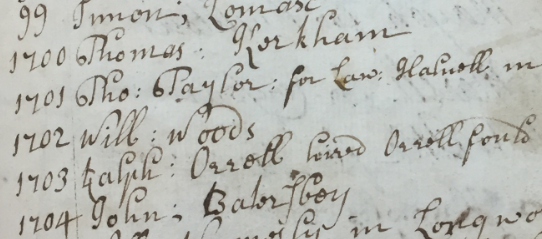 99 Simon; Lomax
1700 Thomas: Kerkham
1701 Tho: Taylor: for Law: Halwell in
1702 Will: Woods
1703 Ralph: Orrell hired Orrell fould
1704 John;
in Longwo